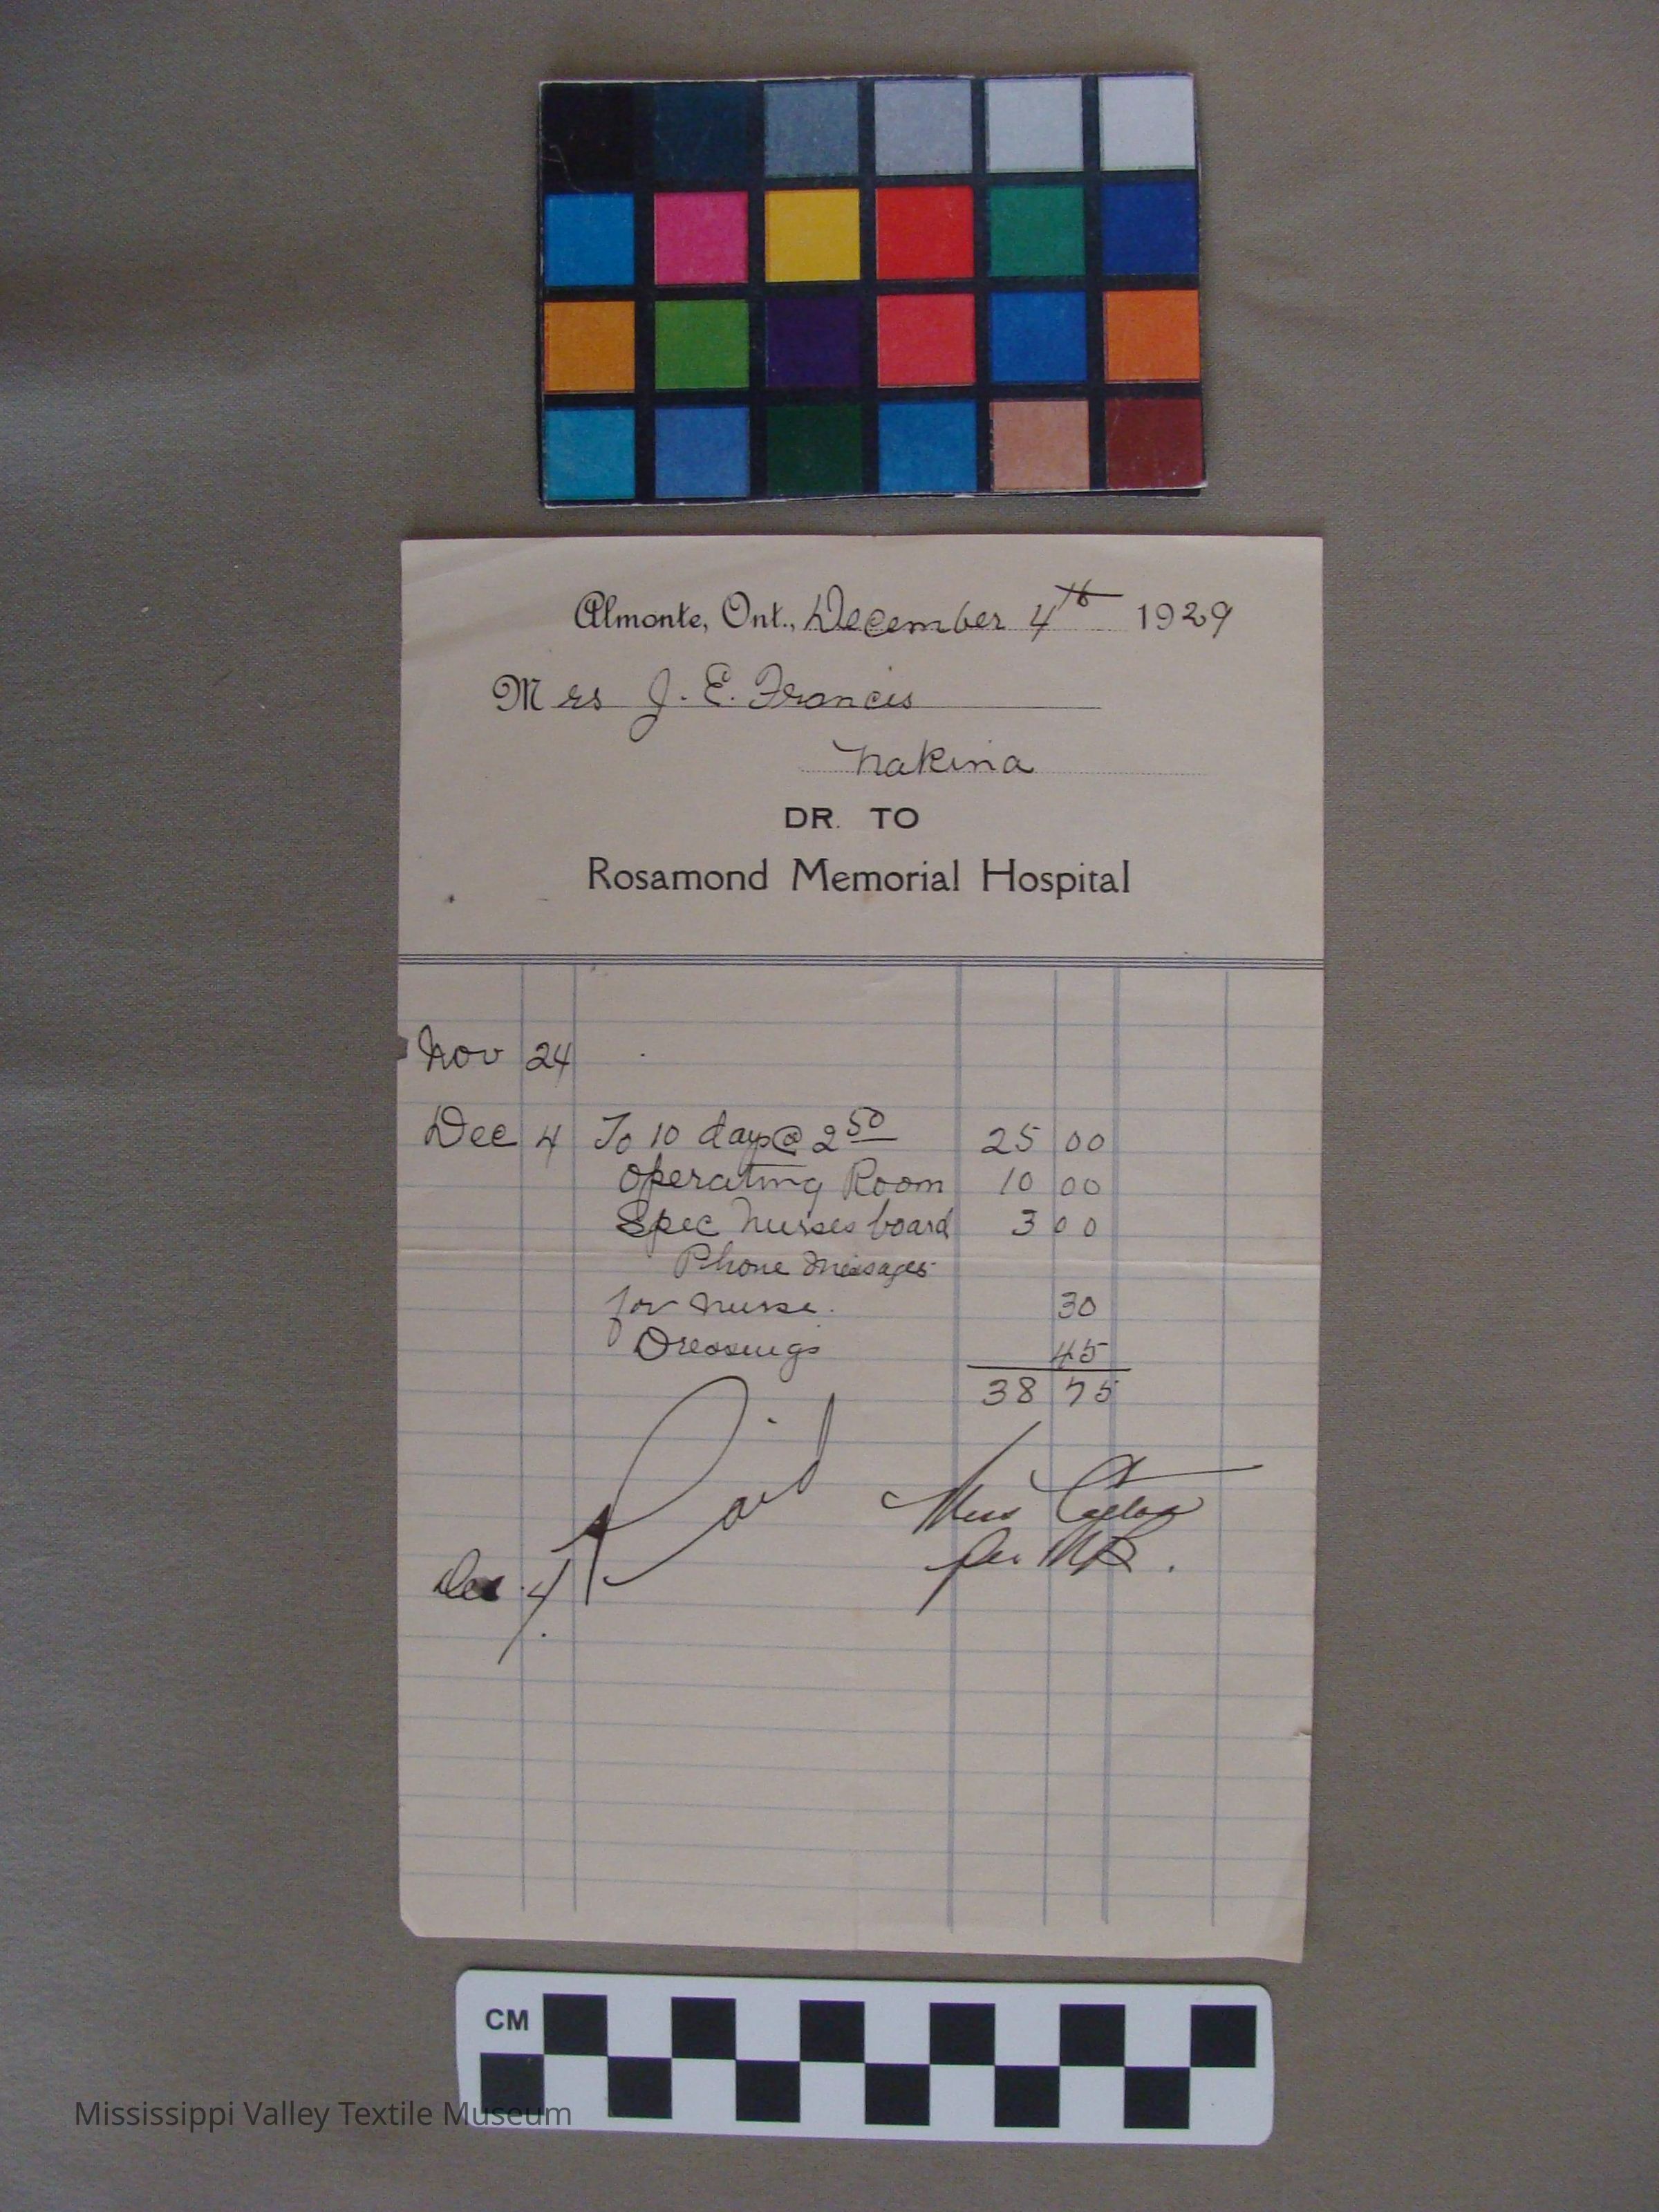 Almonte, Ont., December 4th 1929
Mrs J. E. Francis
Nakina
DR. TO
Rosamond Memorial Hospital
Nov 24
Dec 4 To 10 days @ 2 50 25 00
Operating Room 10 00
Spec Nurses board 3 00
Phone Messages
for nurse. 30
Dressings 45
38 75
Paid
Miss
per
Dec. 4
CM
Mississippi Valley Textile Museum